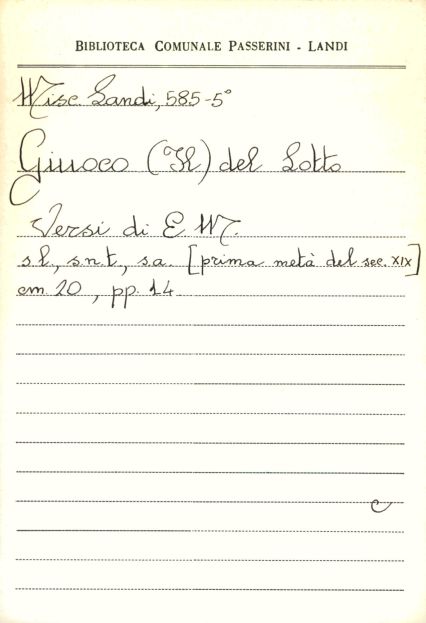 BIBLIOTECA COMUNALE PASSERINI - LANDI
Misc. Landi, 585-5°
Giuoco (Il) del Lotto
Versi di E. M.
s.l., s.n.t., s.a. [prima metà del sec. XIX]
cm. 20, pp. 14
c